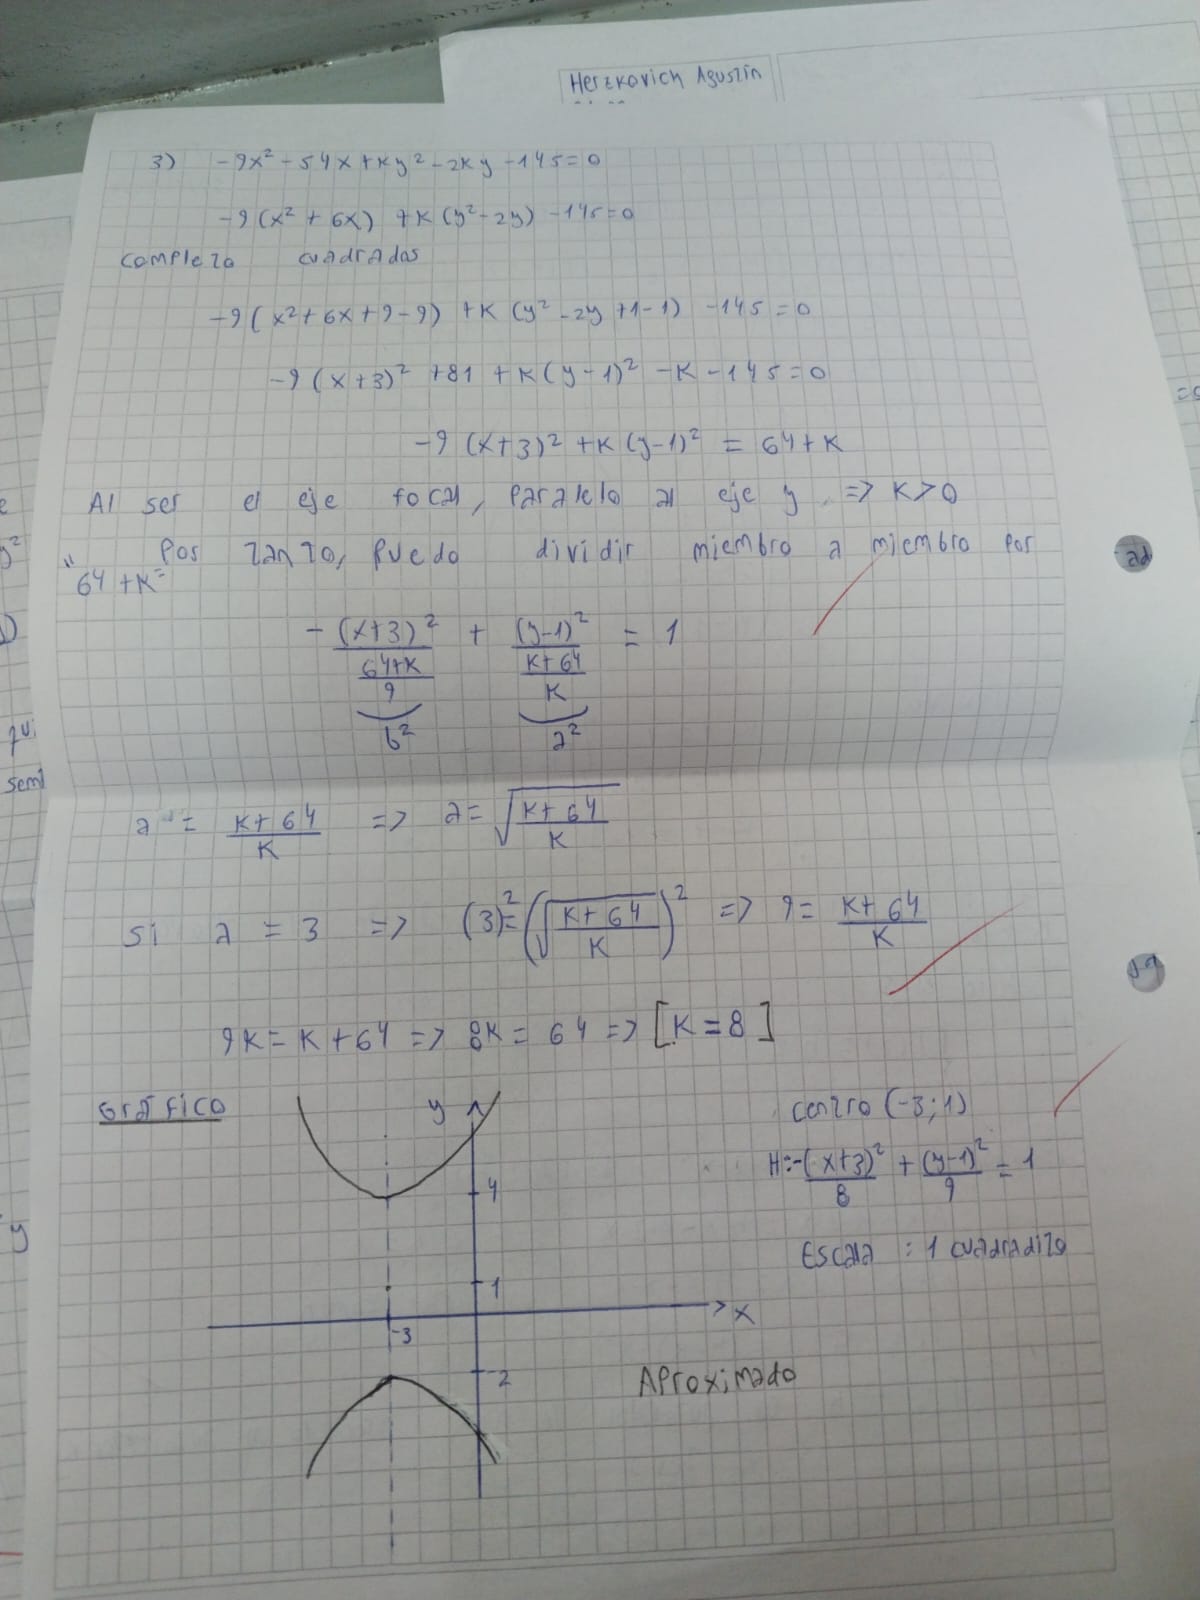 Herzkovich Agustín
3) -9x² - 54x + Ky² - 2Ky - 145 = 0
-9(x² + 6x) + K(y² - 2y) - 145 = 0
Completo cuadrados
-9(x² + 6x + 9 - 9) + K(y² - 2y + 1 - 1) - 145 = 0
-9(x+3)² + 81 + K(y-1)² - K - 145 = 0
-9(x+3)² + K(y-1)² = 64 + K
Al ser el eje focal, paralelo al eje y, => K > 0
Por tanto, puedo dividir miembro a miembro por
"64 + K"
- (x+3)² / ((64+K)/9) + (y-1)² / ((K+64)/K) = 1
b² a²
a = (K+64)/K => a = √((K+64)/K)
Si a = 3 => (3)² = (√((K+64)/K))² => 9 = (K+64)/K
9K = K + 64 => 8K = 64 => [K = 8]
Gráfico
y
Centro (-3; 1)
H: -(x+3)²/8 + (y-1)²/9 = 1
4
Escala : 1 cuadradito
1
x
-3
-2
Aproximado
semi
y